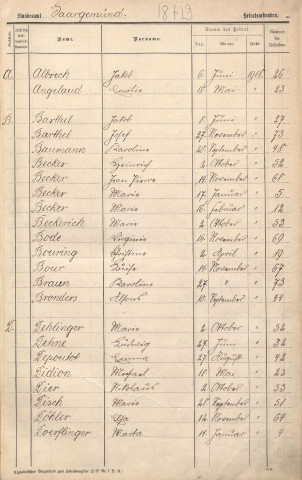 Standesamt Saargemünd. 18 & 19 Heiratsurkunden.
Name. Vorname. Datum der Heirat Nummer der Urkunden.
Tag. Monat. Jahr.
A. Albrech Jakob 6. Juni 1918. 26
Angelaud Emilie 18. Mai " 23
B. Barthel Jakob 8. Juni " 27
Barthel Josef 27. November " 73
Baumann Karoline 20. September " 48
Becker Heinrich 2. Oktober " 52
Becker Jean Pierre 14. November " 68
Becker Marie 17. Januar " 5
Becker Maria 16. Februar " 12
Beckerich Marie 2. Oktober " 53
Bode Eugenie 14. November " 69
Bouring Christine 2. April " 19
Bour Luise 14. November " 67
Braun Karoline 27. " " 73
Bronders Alfons 10. September " 44
D. Dehlinger Marie 2. Oktober " 52
Dehne Ludwig 27. Juni " 32
Depoutot Emma 27. August " 42
Didion Michael 18. Mai " 23
Dier Nikolaus 2. Oktober " 53
Disch Marie 28. September " 51
Döhler Elsa 12. November " 64
Doerflinger Marta 11. Januar " 4